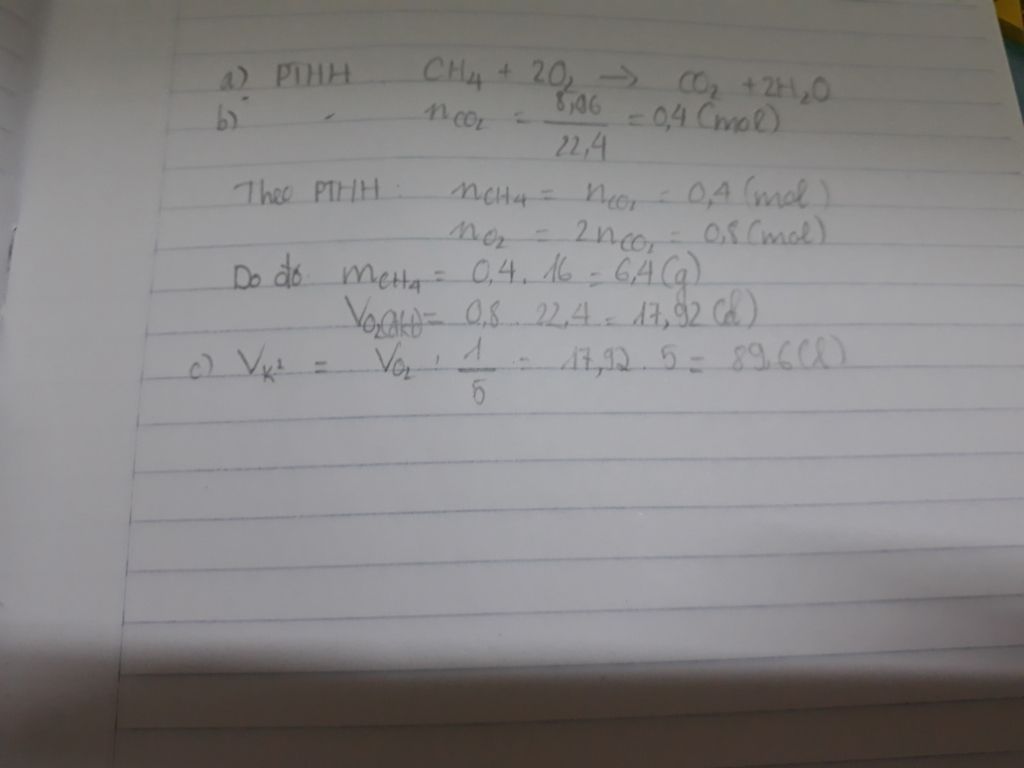 a) PTHH CH₄ + 2O₂ → CO₂ + 2H₂O
b) n CO₂ = 8,96 / 22,4 = 0,4 (mol)
Theo PTHH: n CH₄ = n CO₂ = 0,4 (mol)
n O₂ = 2n CO₂ = 0,8 (mol)
Do đó: m CH₄ = 0,4 . 16 = 6,4 (g)
V O₂(đktc) = 0,8 . 22,4 = 17,92 (l)
c) V K² = V O₂ : 1/5 = 17,92 . 5 = 89,6 (l)